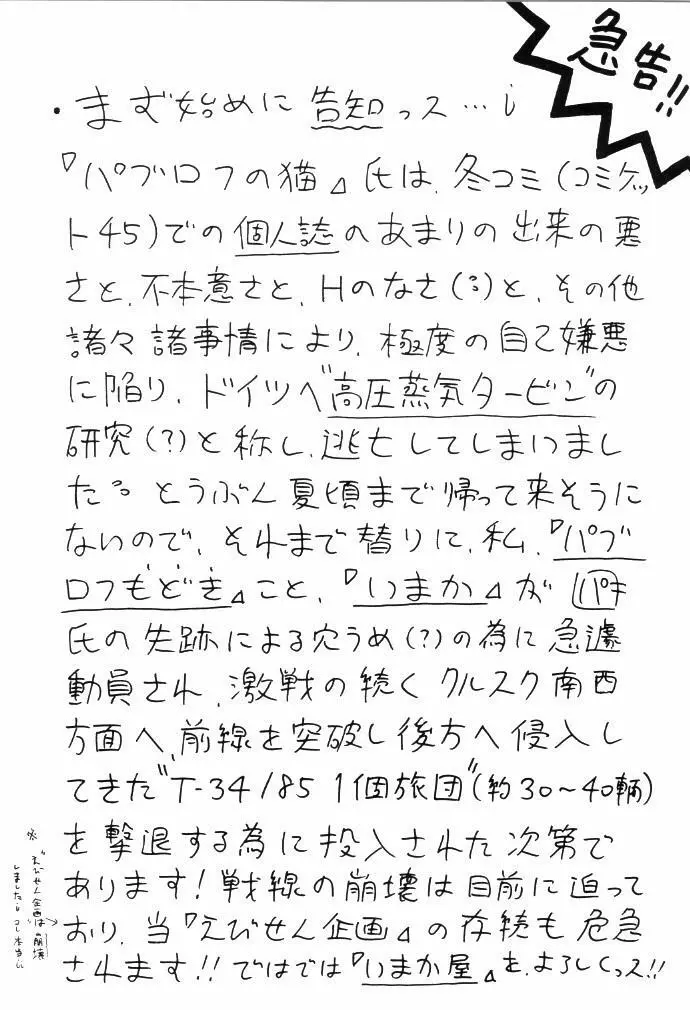 急告!!
・まず始めに告知っス…i
『パブロフの猫』氏は、冬コミ(コミケッ
ト45)での個人誌のあまりの出来の悪
さと、不本意さと、Hのなさ(:)と、その他
諸々諸事情により、極度の自己嫌悪
に陥り、ドイツへ"高圧蒸気タービン"の
研究(?)と称し、逃亡してしまいまし
た。とうぶん夏頃まで帰って来そうに
ないので、それまで替りに、私、『パブ
ロフもどき』こと、『いまか』が パキ
氏の失跡による穴うめ(?)の為に急遽
動員され、激戦の続くクルスク南西
方面へ、前線を突破し後方へ侵入し
てきた"T-34/85 1個旅団"(約30〜40輌)
を撃退する為に投入された次第で
あります!戦線の崩壊は目前に迫って
おり、当『えびせん企画』の存続も危急
されます!!ではでは『いまか屋』を、よろしくっス!!
※"えびせん企画は"崩壊
しました。コレ本当